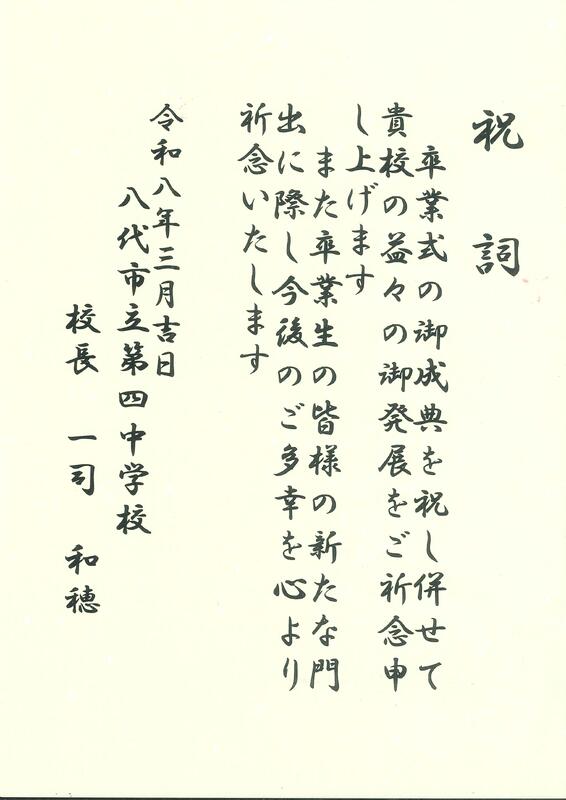 祝詞
卒業式の御成典を祝し併せて
貴校の益々の御発展をご祈念申
し上げます
また卒業生の皆様の新たな門
出に際し今後のご多幸を心より
祈念いたします
令和八年三月吉日
八代市立第四中学校
校長 一司 和穂